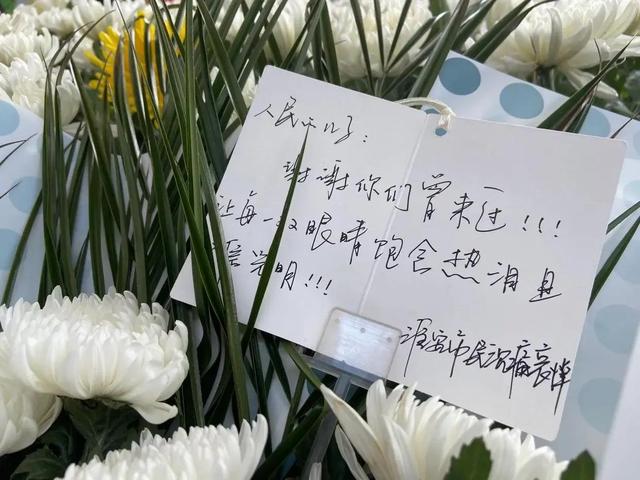 人民的儿子：
谢谢你们曾来过!!!
让每一双眼睛饱含热泪且
光明!!!
淮安市民沉痛哀悼